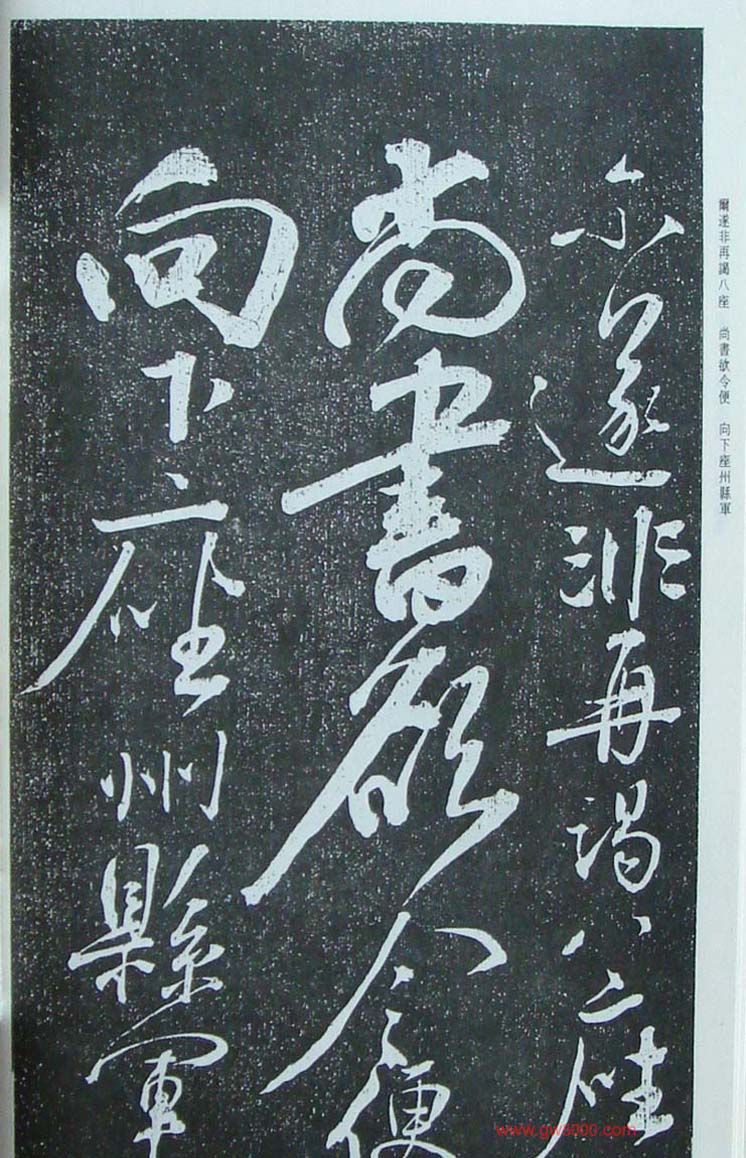 尒遂非再謁八座
尚書欲令便
向下座州縣軍
爾遂非再謁八座　尚書欲令便　向下座州縣軍
www.gw8000.com